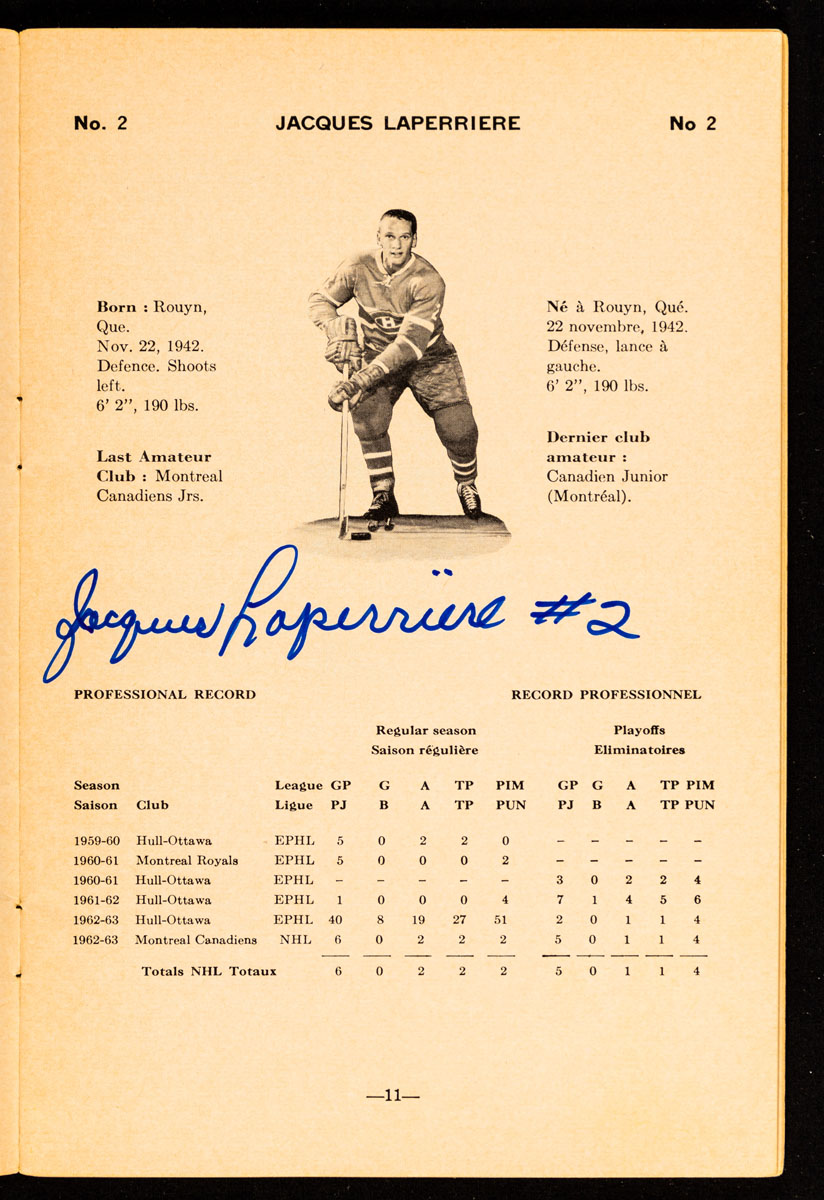 No. 2 JACQUES LAPERRIERE No 2
Born : Rouyn,
Que.
Nov. 22, 1942.
Defence. Shoots
left.
6' 2", 190 lbs.
Last Amateur
Club : Montreal
Canadiens Jrs.
Né à Rouyn, Qué.
22 novembre, 1942.
Défense, lance à
gauche.
6' 2", 190 lbs.
Dernier club
amateur :
Canadien Junior
(Montréal).
Jacques Laperrière #2
PROFESSIONAL RECORD RECORD PROFESSIONNEL
Regular season Playoffs
Saison régulière Eliminatoires
Season League GP G A TP PIM GP G A TP PIM
Saison Club Ligue PJ B A TP PUN PJ B A TP PUN
1959-60 Hull-Ottawa EPHL 5 0 2 2 0 – – – – –
1960-61 Montreal Royals EPHL 5 0 0 0 2 – – – – –
1960-61 Hull-Ottawa EPHL – – – – – 3 0 2 2 4
1961-62 Hull-Ottawa EPHL 1 0 0 0 4 7 1 4 5 6
1962-63 Hull-Ottawa EPHL 40 8 19 27 51 2 0 1 1 4
1962-63 Montreal Canadiens NHL 6 0 2 2 2 5 0 1 1 4
Totals NHL Totaux 6 0 2 2 2 5 0 1 1 4
—11—